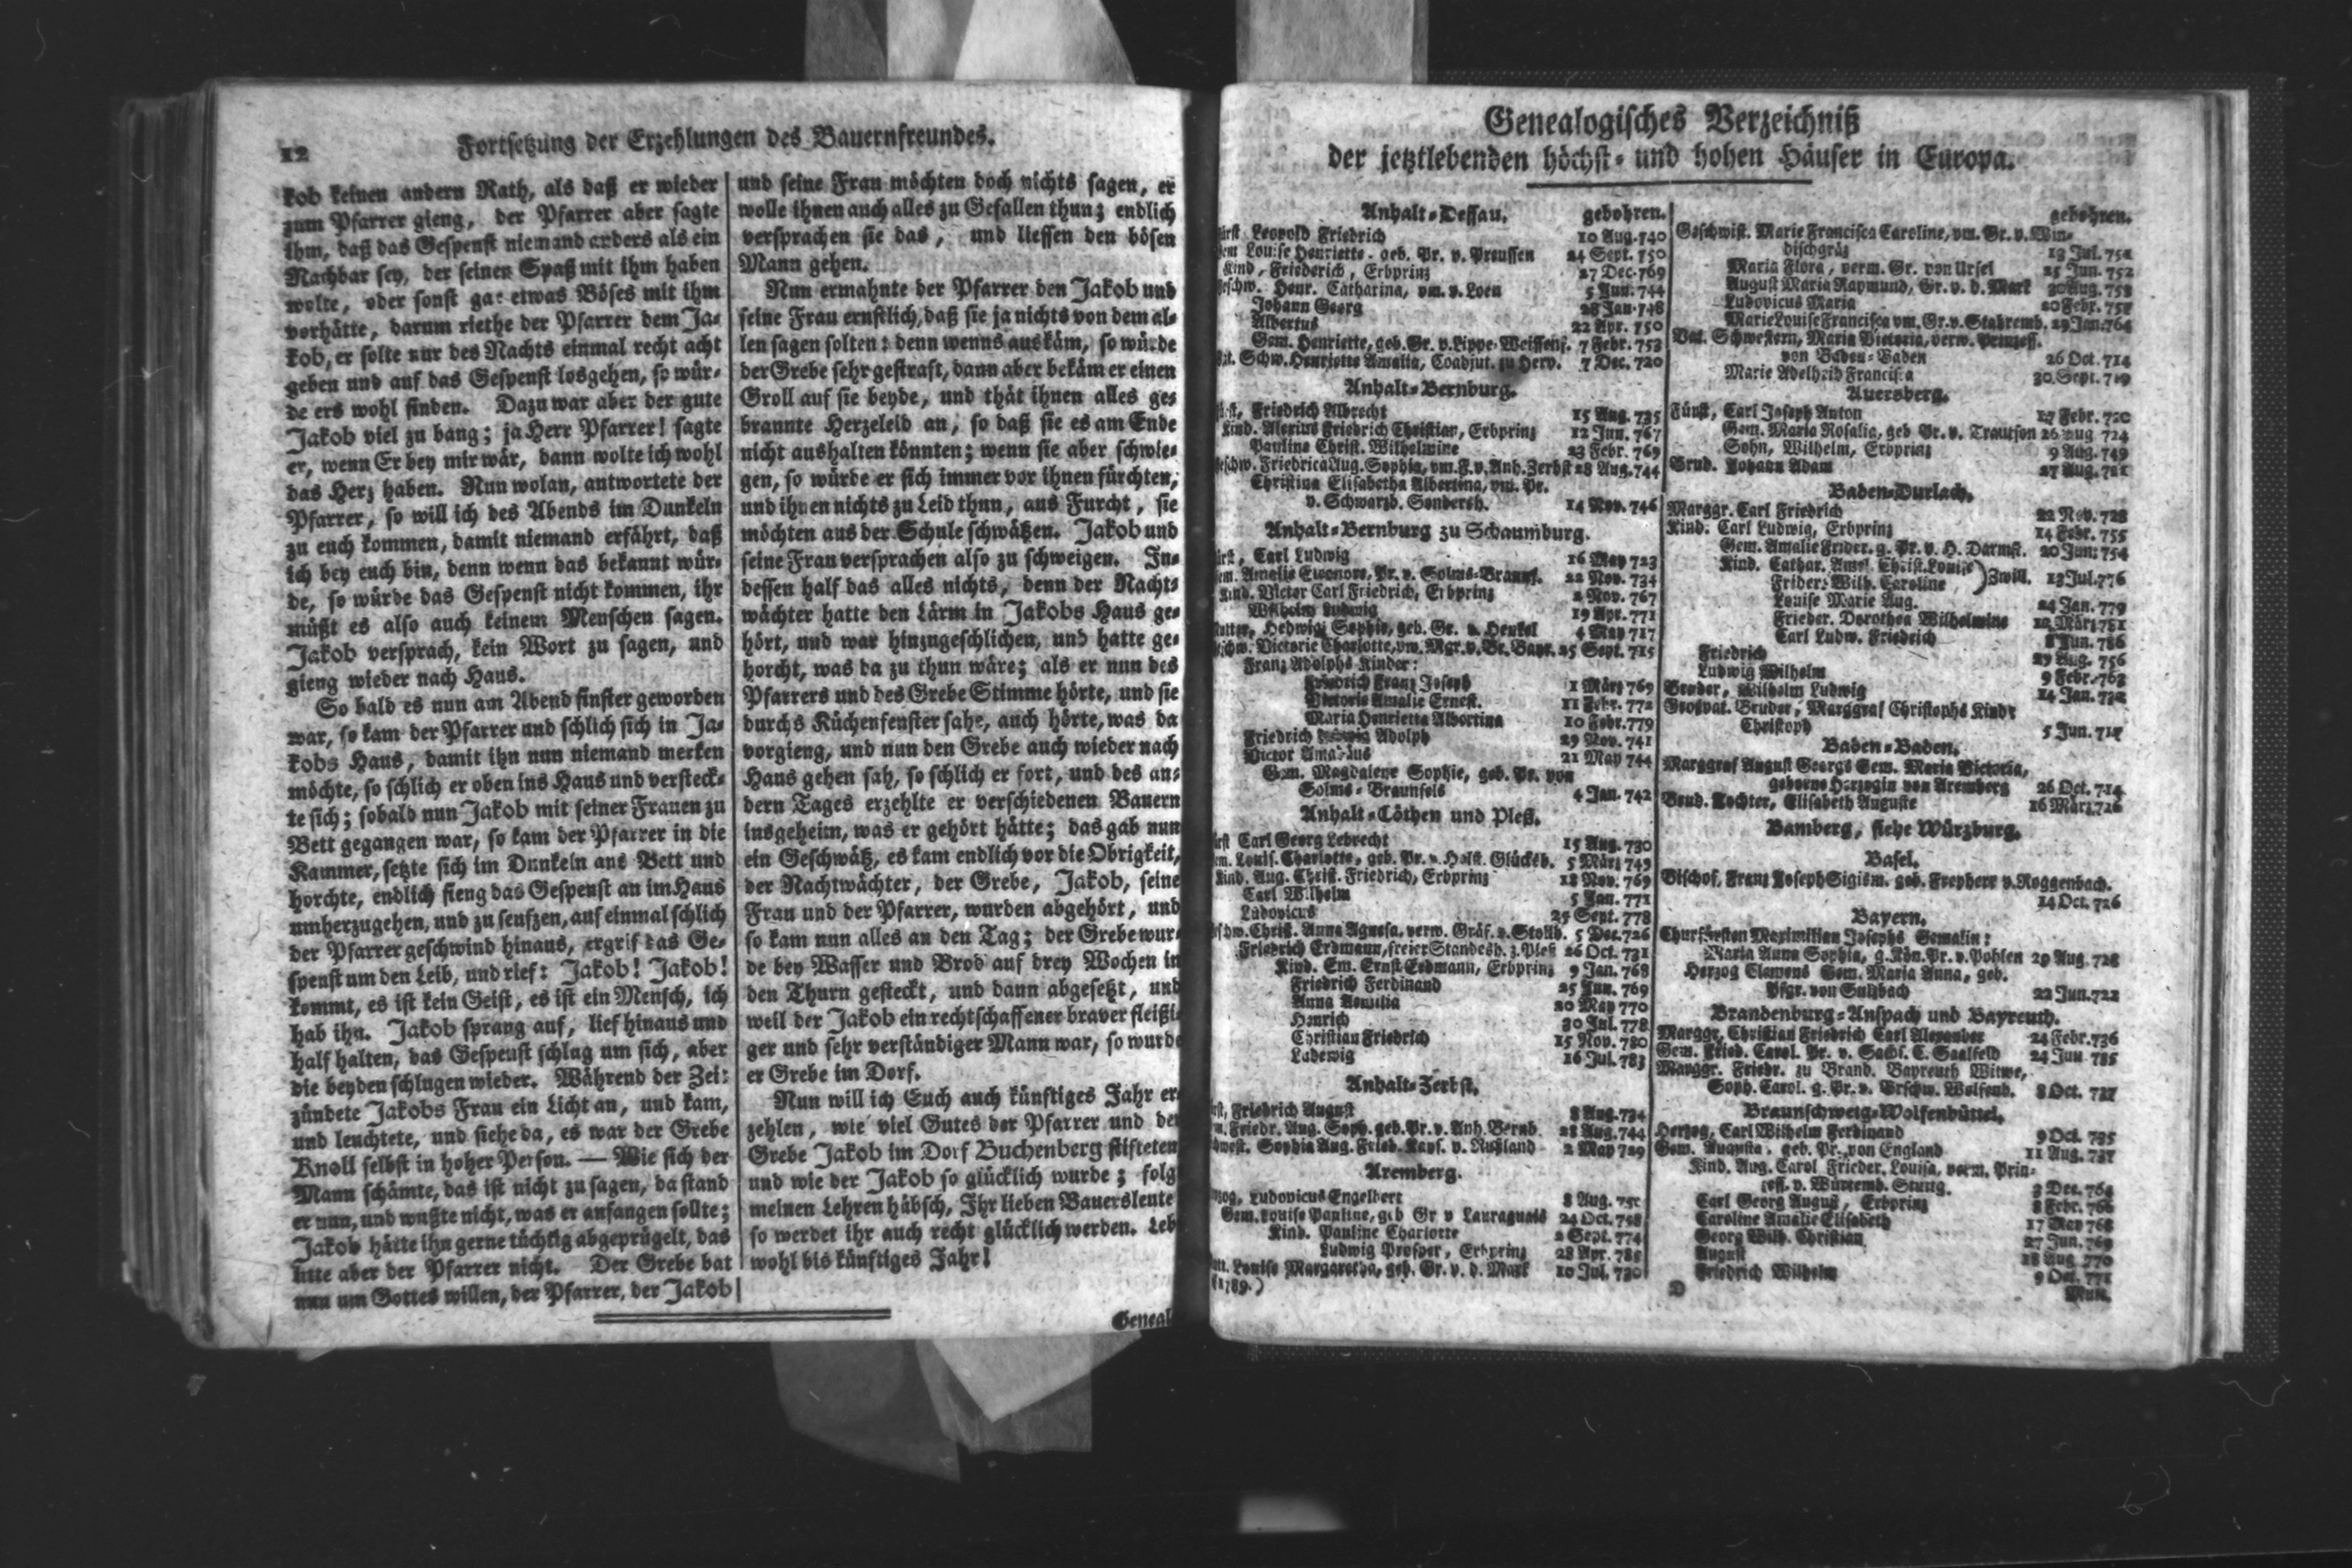 12
Fortsetzung der Erzehlungen des Bauernfreundes.
kob keinen andern Rath, als daß er wieder
zum Pfarrer gieng, der Pfarrer aber sagte
ihm, daß das Gespenst niemand anders als ein
Nachbar sey, der seinen Spaß mit ihm haben
wolte, oder sonst gar etwas Böses mit ihm
vorhätte, darum riethe der Pfarrer dem Ja-
kob, er solte nur des Nachts einmal recht acht
geben und auf das Gespenst losgehen, so wür-
de ers wohl finden. Dazu war aber der gute
Jakob viel zu bang; ja Herr Pfarrer! sagte
er, wenn Er bey mir wär, dann wolte ich wohl
das Herz haben. Nun wolan, antwortete der
Pfarrer, so will ich des Abends im Dunkeln
zu euch kommen, damit niemand erfährt, daß
ich bey euch bin, denn wenn das bekannt wür-
de, so würde das Gespenst nicht kommen, ihr
müßt es also auch keinem Menschen sagen.
Jakob versprach, kein Wort zu sagen, und
gieng wieder nach Haus.
So bald es nun am Abend finster geworden
war, so kam der Pfarrer und schlich sich in Ja-
kobs Haus, damit ihn nun niemand merken
möchte, so schlich er oben ins Haus und versteck-
te sich; sobald nun Jakob mit seiner Frauen zu
Bett gegangen war, so kam der Pfarrer in die
Kammer, setzte sich im Dunkeln ans Bett und
horchte, endlich fieng das Gespenst an im Haus
umherzugehen, und zu seufzen, auf einmal schlich
der Pfarrer geschwind hinaus, ergrif das Ge-
spenst um den Leib, und rief: Jakob! Jakob!
kommt, es ist kein Geist, es ist ein Mensch, ich
hab ihn. Jakob sprang auf, lief hinaus und
half halten, das Gespenst schlug um sich, aber
die beyden schlugen wieder. Während der Zeit
zündete Jakobs Frau ein Licht an, und kam,
und leuchtete, und siehe da, es war der Grebe
Knoll selbst in hoher Person. — Wie sich der
Mann schämte, das ist nicht zu sagen, da stand
er nun, und wußte nicht, was er anfangen sollte;
Jakob hätte ihn gerne tüchtig abgeprügelt, das
litte aber der Pfarrer nicht. Der Grebe bat
nun um Gottes willen, der Pfarrer, der Jakob
und seine Frau möchten doch nichts sagen, er
wolle ihnen auch alles zu Gefallen thun; endlich
versprachen sie das, und liessen den bösen
Mann gehen.
Nun ermahnte der Pfarrer den Jakob und
seine Frau ernstlich, daß sie ja nichts von dem al-
len sagen solten: denn wenns auskäm, so würde
der Grebe sehr gestraft, dann aber bekäm er einen
Groll auf sie beyde, und thät ihnen alles ge-
brannte Herzeleid an, so daß sie es am Ende
nicht aushalten könnten; wenn sie aber schwie-
gen, so würde er sich immer vor ihnen fürchten,
und ihnen nichts zu Leid thun, aus Furcht, sie
möchten aus der Schule schwätzen. Jakob und
seine Frau versprachen also zu schweigen. In-
dessen half das alles nichts, denn der Nacht-
wächter hatte den Lärm in Jakobs Haus ge-
hört, und war hinzugeschlichen, und hatte ge-
horcht, was da zu thun wäre; als er nun des
Pfarrers und des Grebe Stimme hörte, und sie
durchs Küchenfenster sahe, auch hörte, was da
vorgieng, und nun den Grebe auch wieder nach
Haus gehen sah, so schlich er fort, und des an-
dern Tages erzehlte er verschiedenen Bauern
insgeheim, was er gehört hätte; das gab nun
ein Geschwätz, es kam endlich vor die Obrigkeit,
der Nachtwächter, der Grebe, Jakob, seine
Frau und der Pfarrer, wurden abgehört, und
so kam nun alles an den Tag; der Grebe wur-
de bey Wasser und Brod auf drey Wochen in
den Thurn gesteckt, und dann abgesetzt, und
weil der Jakob ein rechtschaffener braver fleißi-
ger und sehr verständiger Mann war, so wurde
er Grebe im Dorf.
Nun will ich Euch auch künftiges Jahr er
zehlen, wie viel Gutes der Pfarrer und der
Grebe Jakob im Dorf Buchenberg stifteten
und wie der Jakob so glücklich wurde; folg
meinen Lehren häbsch, Ihr lieben Bauersleute
so werdet ihr auch recht glücklich werden. Leb
wohl bis künftiges Jahr!
Geneal
Genealogisches Verzeichniß
der jetztlebenden höchst- und hohen Häuser in Europa.
Anhalt-Dessau. gebohren.
Leopold Friedrich 10 Aug. 740
Louise Henriette. geb. Pr. v. Preussen 24 Sept. 750
Kind, Friederich, Erbprinz 27 Dec. 769
Henr. Catharina, vm. v. Loen 5 Jun. 744
Johann Georg 28 Jan. 748
Albertus 22 Apr. 750
Gem. Henriette, geb. Gr. v. Lippe-Weissenf. 7 Febr. 753
Schw. Henriette Amalia, Coadjut. zu Herv. 7 Dec. 720
Anhalt-Bernburg.
Friedrich Albrecht 15 Aug. 735
Kind. Alexius Friedrich Christian, Erbprinz 12 Jun. 767
Pauline Christ. Wilhelmine 23 Febr. 769
Friedrica Aug. Sophia, vm. F. v. Anh. Zerbst 28 Aug. 744
Christina Elisabetha Albertina, vm. Pr.
v. Schwarzb. Sondersh. 14 Nov. 746
Anhalt-Bernburg zu Schaumburg.
Carl Ludwig 16 May 723
Amalie Eleonore, Pr. v. Solms-Braunf. 22 Nov. 734
Kind. Victor Carl Friedrich, Erbprinz 2 Nov. 767
Wilhelm Ludwig 19 Apr. 771
Hedwig Sophie, geb. Gr. v. Henkel 4 May 717
Victorie Charlotte, vm. Mgr. v. Br. Bayr. 25 Sept. 715
Franz Adolphs Kinder:
Friedrich Franz Joseph 1 März 769
Victorie Amalie Ernest. 11 Febr. 772
Maria Henrietta Albertina 10 Febr. 779
Friedrich Ludwig Adolph 29 Nov. 741
Victor Amadäus 21 May 744
Gem. Magdalene Sophie, geb. Pr. von
Solms-Braunfels 4 Jan. 742
Anhalt-Cöthen und Pleß.
Carl Georg Lebrecht 15 Aug. 730
Louis. Charlotte, geb. Pr. v. Holst. Glücksb. 5 März 749
Kind. Aug. Christ. Friedrich, Erbprinz 18 Nov. 769
Carl Wilhelm 5 Jan. 771
Ludovicus 25 Sept. 778
Christ. Anna Agnesa, verw. Gräf. v. Stollb. 5 Dec. 726
Friedrich Erdmann, freier Standesh. z. Pleß 26 Oct. 731
Kind. Em. Ernst Erdmann, Erbprinz 9 Jan. 768
Friedrich Ferdinand 25 Jun. 769
Anna Aemilia 20 May 770
Henrich 30 Jul. 778
Christian Friedrich 15 Nov. 780
Ludewig 16 Jul. 783
Anhalt-Zerbst.
Friedrich August 8 Aug. 734
Friedr. Aug. Soph. geb. Pr. v. Anh. Bernb. 28 Aug. 744
Sophia Aug. Fried. Kays. v. Rußland 2 May 729
Aremberg.
Ludovicus Engelbert 8 Aug. 750
Gem. Louise Pauline, geb Gr v Lauraguais 24 Oct. 758
Kind. Pauline Charlotte 2 Sept. 774
Ludwig Prosper, Erbprinz 28 Apr. 785
Louise Margaretha, geb. Gr. v. d. Mark 10 Jul. 730
(1789.)
gebohren.
Geschwist. Marie Francisca Caroline, vm. Gr. v. Win-
dischgräz 13 Jul. 751
Maria Flora, verm. Gr. von Ursel 25 Jun. 752
August Maria Raymund, Gr. v. d. Mark 30 Aug. 753
Ludovicus Maria 20 Febr. 757
Marie Louise Francisca vm. Gr. v. Stahremb. 29 Jan. 764
Vat. Schwestern, Maria Victoria, verw. Prinzess.
von Baden-Baden 26 Oct. 714
Marie Adelheid Francisca 30 Sept. 719
Auersberg.
Fürst, Carl Joseph Anton 17 Febr. 720
Gem. Maria Rosalia, geb Gr. v. Trautson 26 Aug 724
Sohn, Wilhelm, Erbprinz 9 Aug. 749
Brud. Johann Adam 27 Aug. 721
Baden-Durlach.
Marggr. Carl Friedrich 22 Nov. 728
Kind. Carl Ludwig, Erbprinz 14 Febr. 755
Gem. Amalie Frider. g. Pr. v. H. Darmst. 20 Jun. 754
Kind. Cathar. Amal. Christ. Louise
Frider. Wilh. Caroline ) Zwill. 13 Jul. 776
Louise Marie Aug. 24 Jan. 779
Frieder. Dorothea Wilhelmine 12 März 781
Carl Ludw. Friedrich 8 Jun. 786
Friedrich 29 Aug. 756
Ludwig Wilhelm 9 Febr. 763
Bruder, Wilhelm Ludwig 14 Jan. 732
Grosvat. Bruder, Marggraf Christophs Kind:
Christoph 5 Jun. 717
Baden-Baden.
Marggraf August Georgs Gem. Maria Victoria,
geborne Herzogin von Aremberg 26 Oct. 714
Brud. Tochter, Elisabeth Auguste 16 März 726
Bamberg, siehe Würzburg.
Basel.
Bischof, Franz Joseph Sigism. geb. Freyherr v. Roggenbach.
14 Oct. 726
Bayern.
Churfürsten Maximilian Josephs Gemalin:
Maria Anna Sophia, g. Kön. Pr. v. Pohlen 29 Aug. 728
Herzog Clemens Gem. Maria Anna, geb.
Pfgr. von Sulzbach 22 Jun. 722
Brandenburg-Anspach und Bayreuth.
Marggr. Christian Friedrich Carl Alexander 24 Febr. 736
Gem. Fried. Carol. Pr. v. Sachs. C. Saalfeld 24 Jun 735
Marggr. Friedr. zu Brand. Bayreuth Witwe,
Soph. Carol. g. Pr. v. Brschw. Wolfenb. 8 Oct. 737
Braunschweig-Wolfenbüttel.
Herzog, Carl Wilhelm Ferdinand 9 Oct. 735
Gem. Augusta, geb. Pr. von England 11 Aug. 737
Kind. Aug. Carol Frieder. Louisa, verm. Prin-
zess. v. Würtemb. Stuttg. 3 Dec. 764
Carl Georg August, Erbprinz 8 Febr. 766
Caroline Amalie Elisabeth 17 May 768
Georg Wilh. Christian 27 Jun. 769
August 18 Aug 770
Friedrich Wilhelm 9 Oct. 771
D